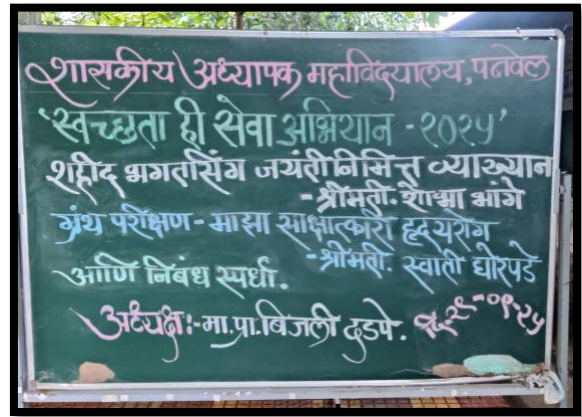 शासकीय अध्यापक महाविद्यालय, पनवेल
'स्वच्छता ही सेवा अभियान - २०२५'
शहीद भगतसिंग जयंतीनिमित्त व्याख्यान
- श्रीमती. शोभा भांगे
ग्रंथ परीक्षण - माझा साक्षात्कारी हृदयरोग
- श्रीमती. स्वाती घोरपडे
आणि निबंध स्पर्धा.
अध्यक्ष:- मा.प्रा.बिजली दडपे. दि.२९-०९-२५